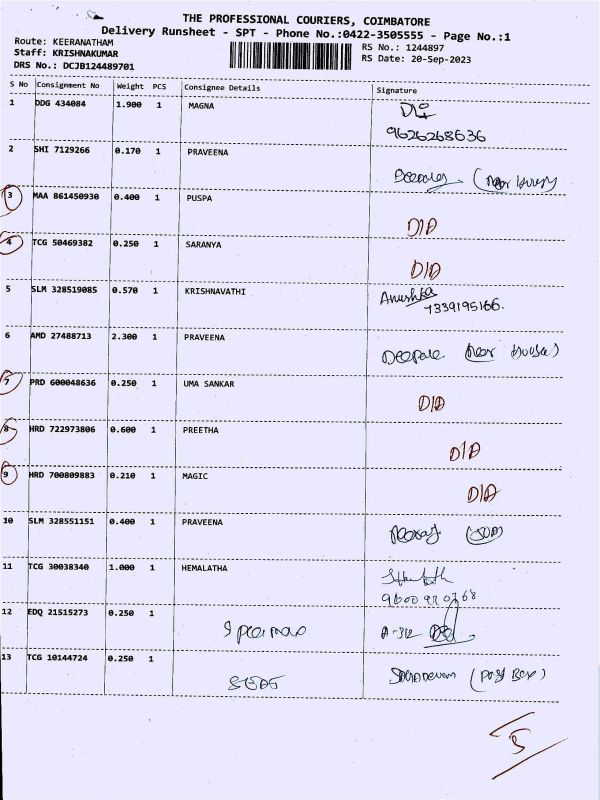 THE PROFESSIONAL COURIERS, COIMBATORE
Delivery Runsheet - SPT - Phone No.:0422-3505555 - Page No.:1
Route: KEERANATHAM
Staff: KRISHNAKUMAR
DRS No.: DCJB124489701
RS No.: 1244897
RS Date: 20-Sep-2023
S No Consignment No Weight PCS Consignee Details Signature
1 DDG 434084 1.900 1 MAGNA
9626268636
2 SHI 7129266 0.170 1 PRAVEENA
(near House)
3 MAA 861450930 0.400 1 PUSPA
D/D
4 TCG 50469382 0.250 1 SARANYA
D/D
5 SLM 328519085 0.570 1 KRISHNAVATHI Anushka
7339195166.
6 AMD 27488713 2.300 1 PRAVEENA
(near House)
7 PRD 600048636 0.250 1 UMA SANKAR
D/D
8 HRD 722973806 0.600 1 PREETHA
D/D
9 HRD 700809883 0.210 1 MAGIC
D/D
10 SLM 328551151 0.400 1 PRAVEENA
11 TCG 30038340 1.000 1 HEMALATHA
12 EDQ 21515273 0.250 1
A-312
13 TCG 10144724 0.250 1
(Post Box)
5